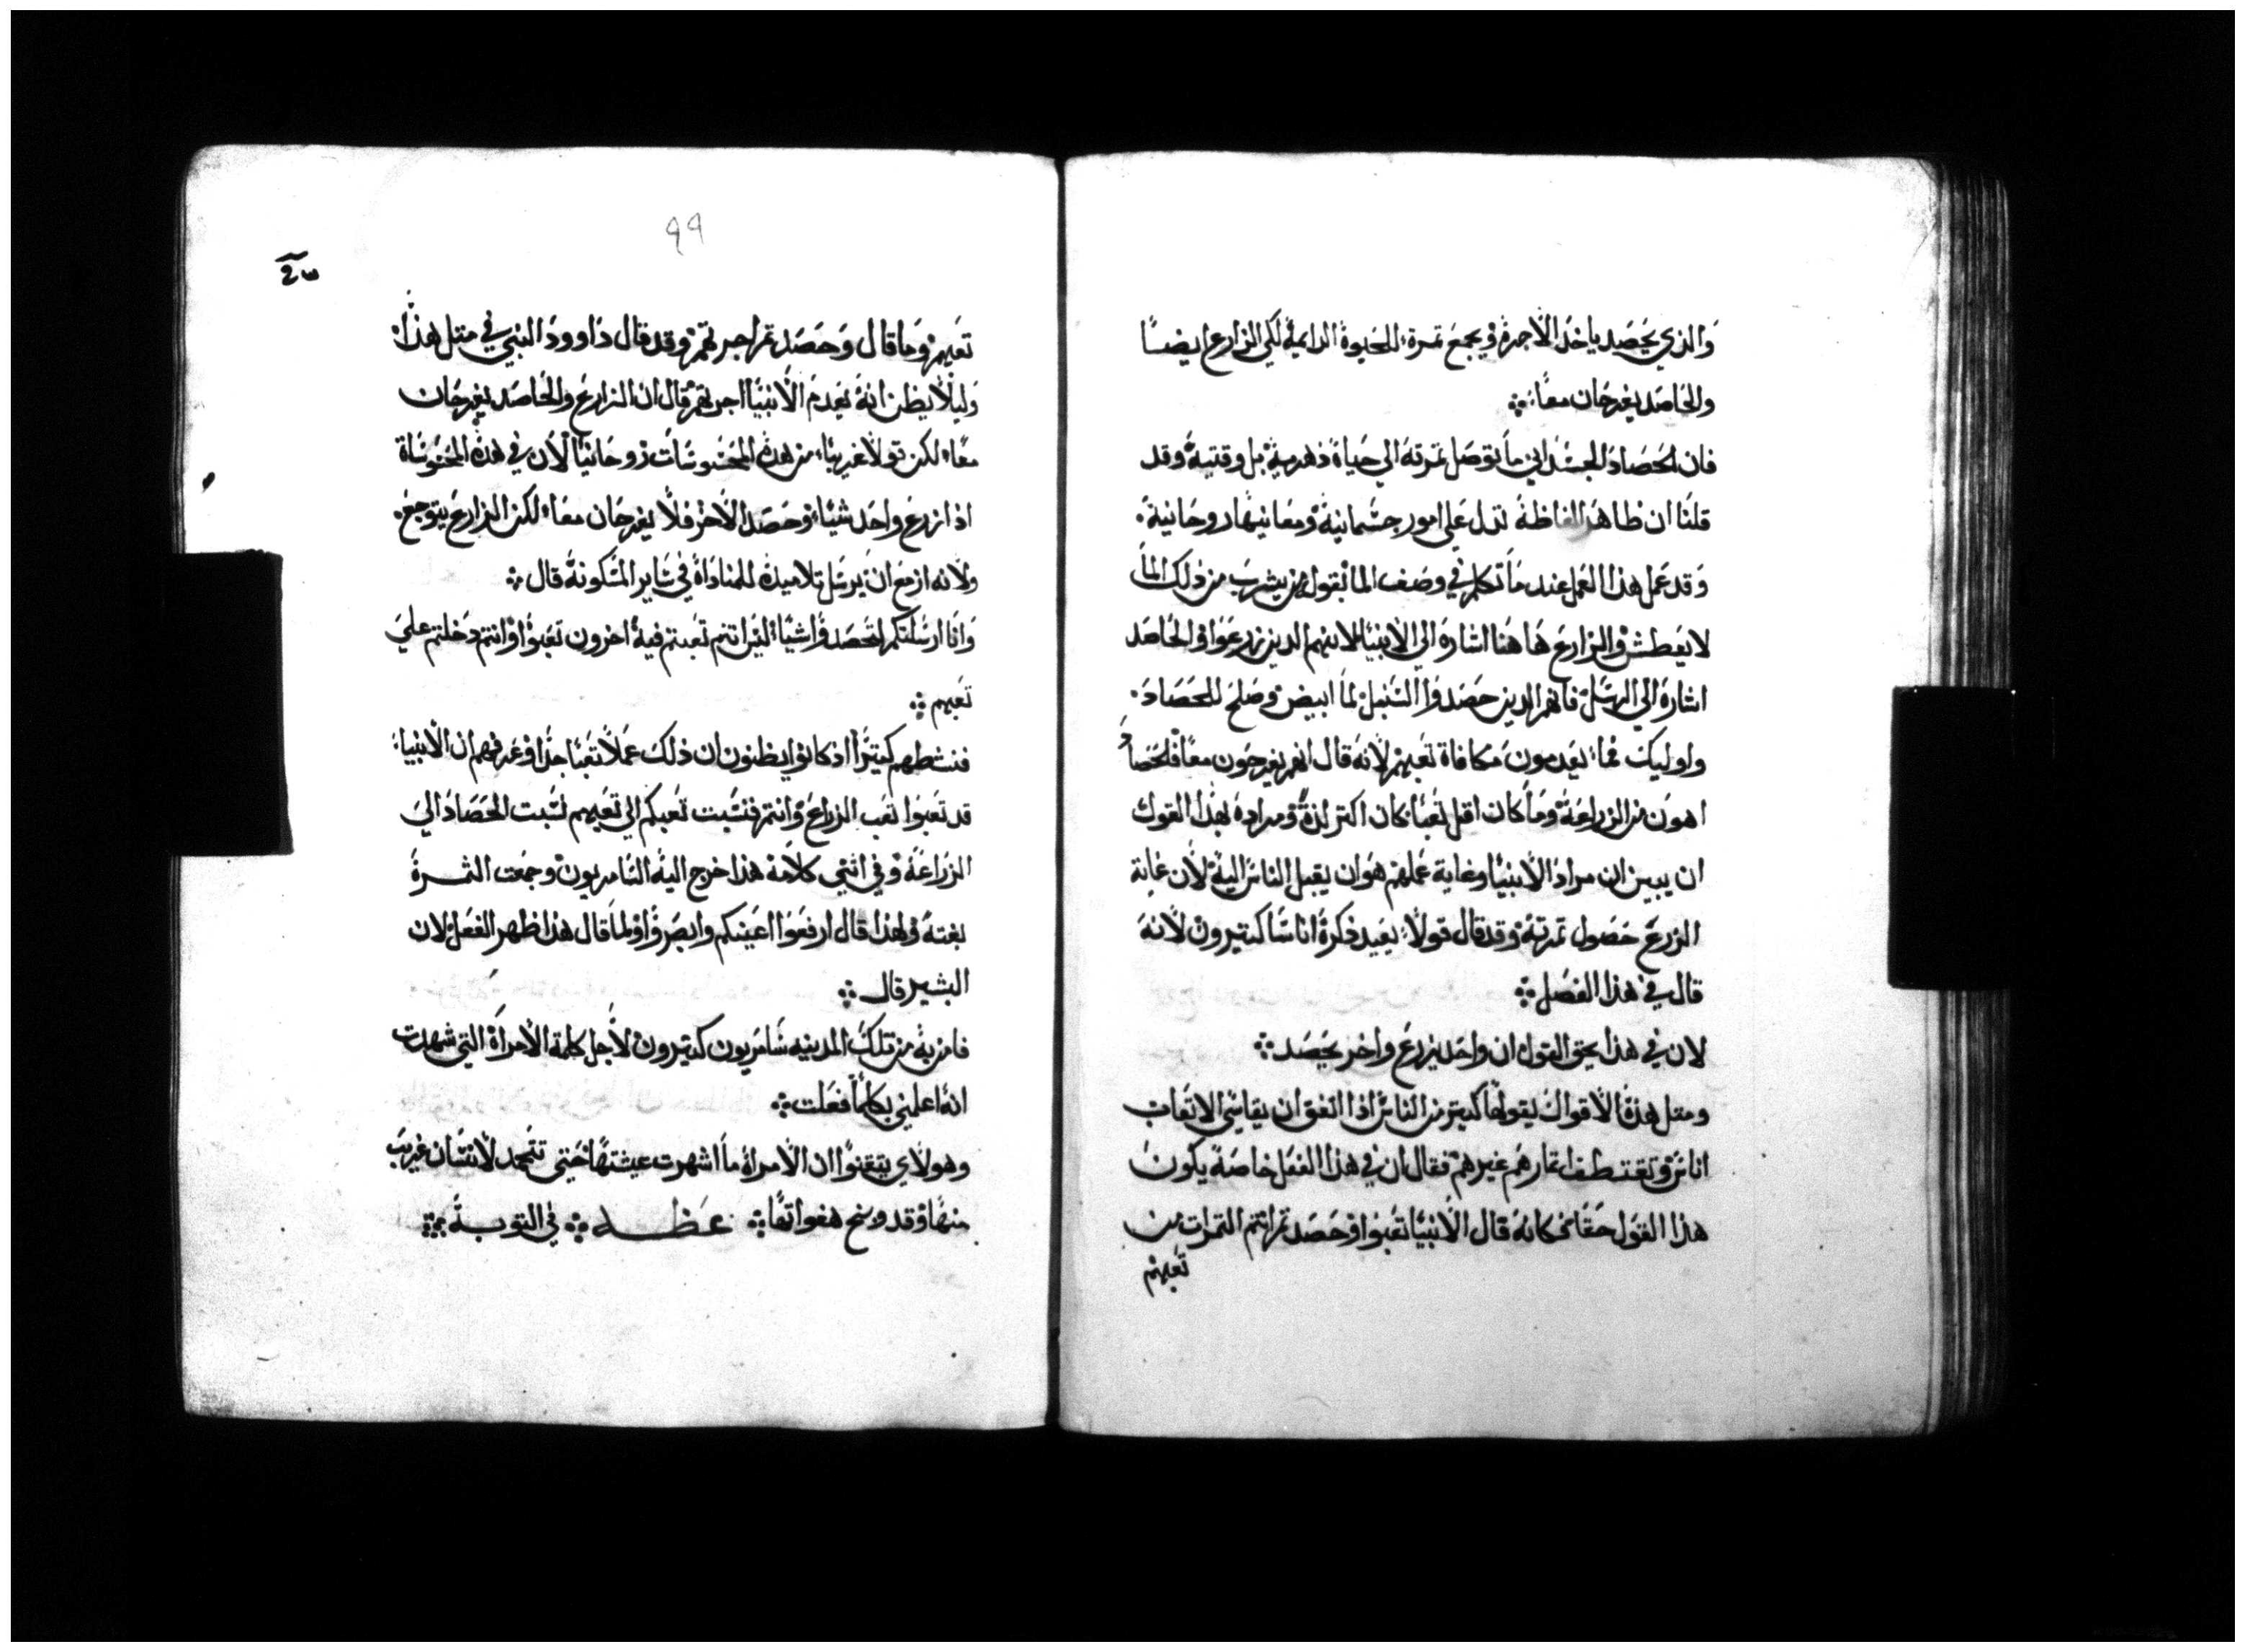 والذي يحصد ياخذ الاجرة ويجمع تمرة للحيوة الدايمة لكي الزارع ايضًا
والحاصد يفرحان معًا
فان الحصاد الجسداني ما توصل تمرته الي حياة دهرية بل وقتية وقد
قلنا ان ظاهر الفاظة تدل علي امور جسمانية ومعانيها روحانية
وقد عمل هذا العمل عند ما تكلم في وصف الما بقوله من يشرب من ذلك الما
لا يعطش والزارع هاهنا اشارة الي الانبيا لانهم الدين زرعوا والحاصد
اشارة الي الرسل فانهم الدين حصدوا السنبل لما ابيض وصلح للحصاد
واوليك فما يعدمون مكافاة تعبهم لانه قال انهم يفرحون معًا فالحصاد
اهون من الزراعة وما كان اقل تعبًا كان اكتر لذة ومراده بهذا القول
ان يبين ان مراد الانبيا وغاية عملهم هو ان يقبل الناس الية لان غاية
الزرع حصول تمرته وقد قال قولا يعيد ذكرة اناسًا كتيرون لانه
قال في هذا الفصل
لان في هذا يحق القول ان واحد يزرع واخر يحصد
ومتل هذة الاقوال يقولها كتير من الناس اذا اتفق ان يقاسي الاتعاب
اناس وتقتطف اتمارهم غيرهم فقال ان في هذا الفعل خاصة يكون
هذا القول حقًا فكانه قال الانبيا تعبوا وحصدتم انتم التمرات من
تعبهم
٩٩
تعبهم وما قال وحصدتم اجرتهم وقد قال داوود النبي في متل هذا
وليلا يظن انه يعدم الانبيا اجرتهم قال ان الزارع والحاصد يفرحان
معًا لكن قولا غريبًا من هذة المحسوسات روحانيًا لان في هذة المحسوساة
اذا زرع واحد شيًا وحصد الاخر فلا يفرحان معًا لكن الزارع يتوجع
ولانه ازمع ان يرسل تلاميذة للمناداة في ساير المسكونة قال
وانا ارسلتكم لتحصدوا شيًا ليس انتم تعبتم فية اخرون تعبوا وانتم دخلتم علي
تعبهم
فنشطهم كتيرًا اذ كانوا يظنون ان ذلك عملا تعبًا جدًا وعرفهم ان الانبيا
قد تعبوا تعب الزراع وانتم فنسبت تعبكم الي تعبهم نسبت الحصاد الي
الزراعة وفي اثني كلامة هذا خرج الية السامريون وجمعت الثمرة
بغتة ولهذا قال ارفعوا اعينكم وابصروا ولما قال هذا ظهر الفعل لان
البشير قال
فامن به من تلك المدينه سامريون كتيرون لاجل كلمة الامراة التي شهدت
انه اعلمني بكلما فعلت
وهولاي يتيقنوا ان الامراة ما اشهرت عيشتها حتي تمجد لانسان غريب
منها وقد وضح هفواتها عظه في التوبة